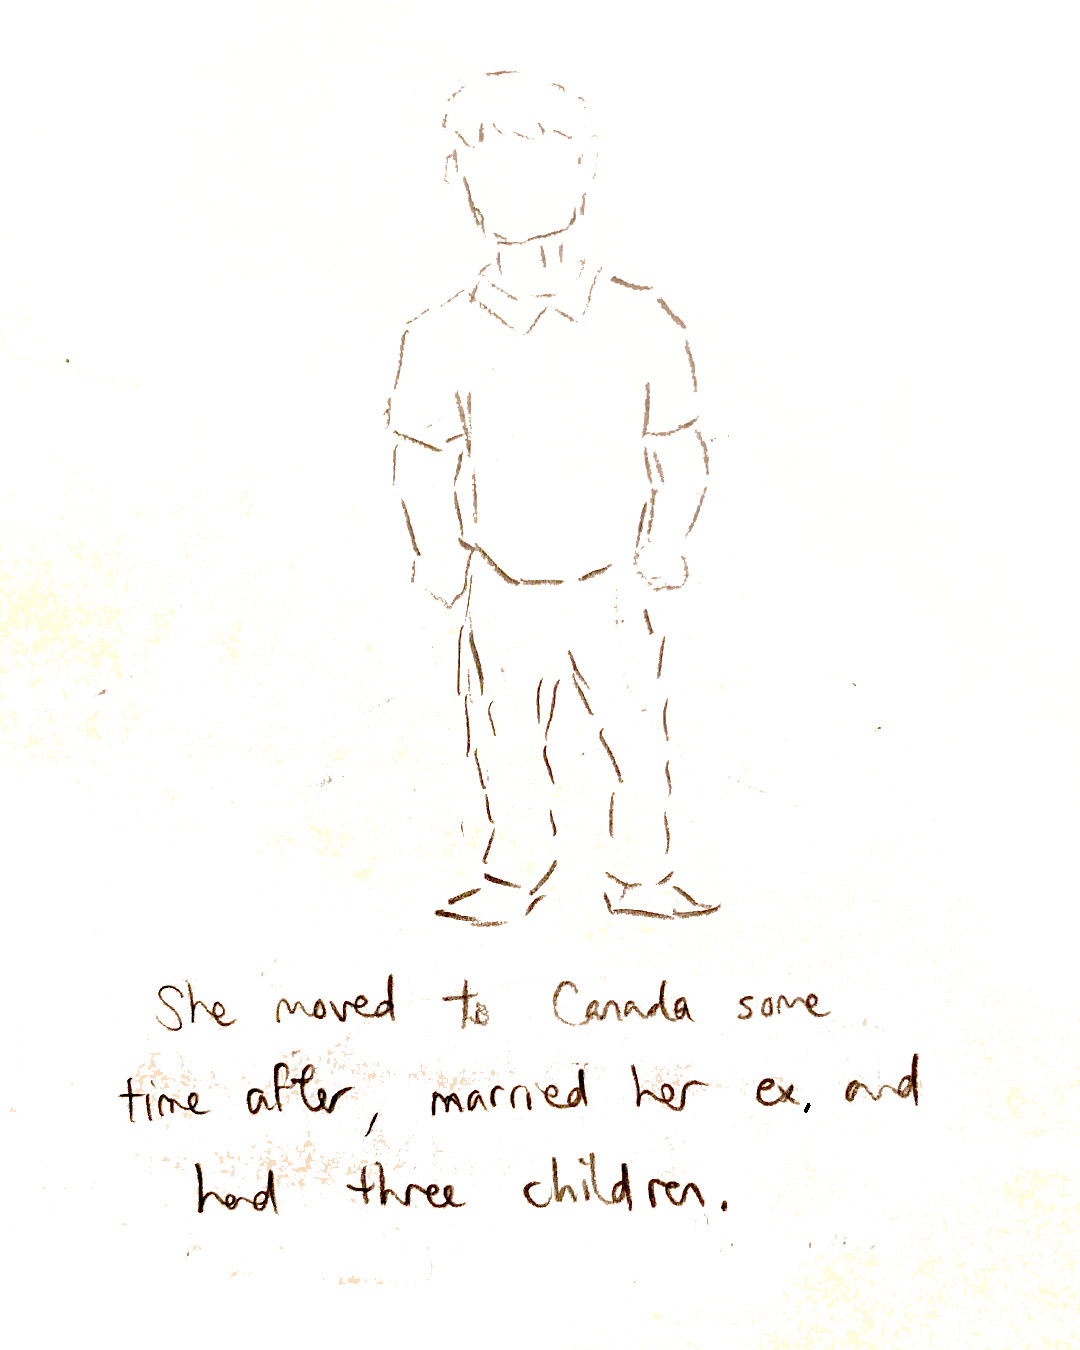 She moved to Canada some
time after, married her ex, and
had three children.